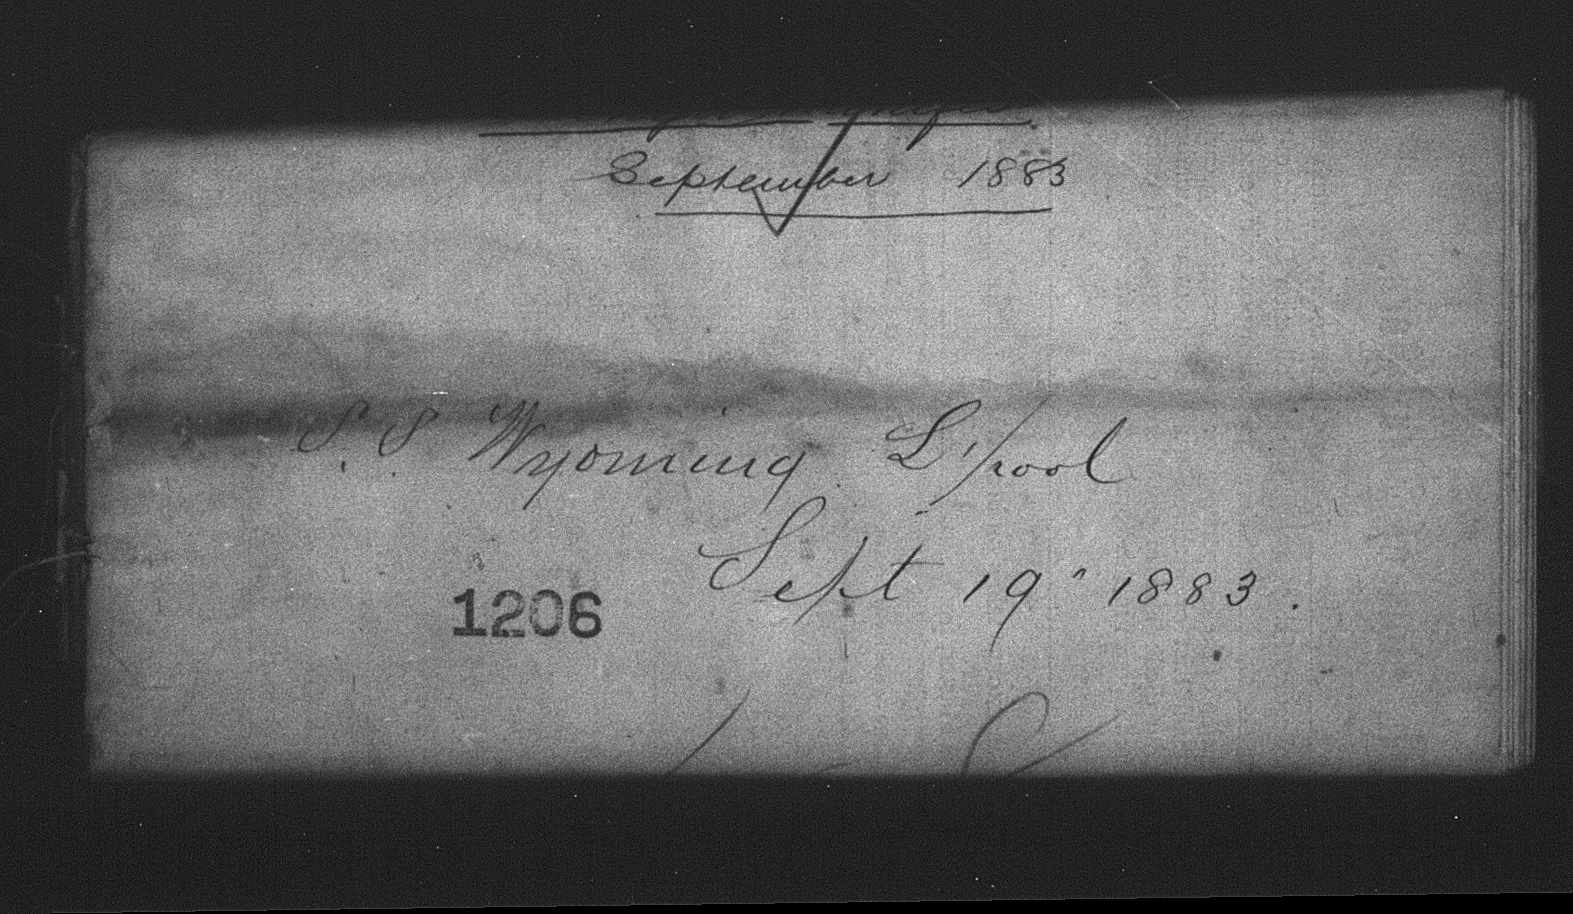 September 1883
S. S. Wyoming L'pool
Sept 19" 1883.
1206